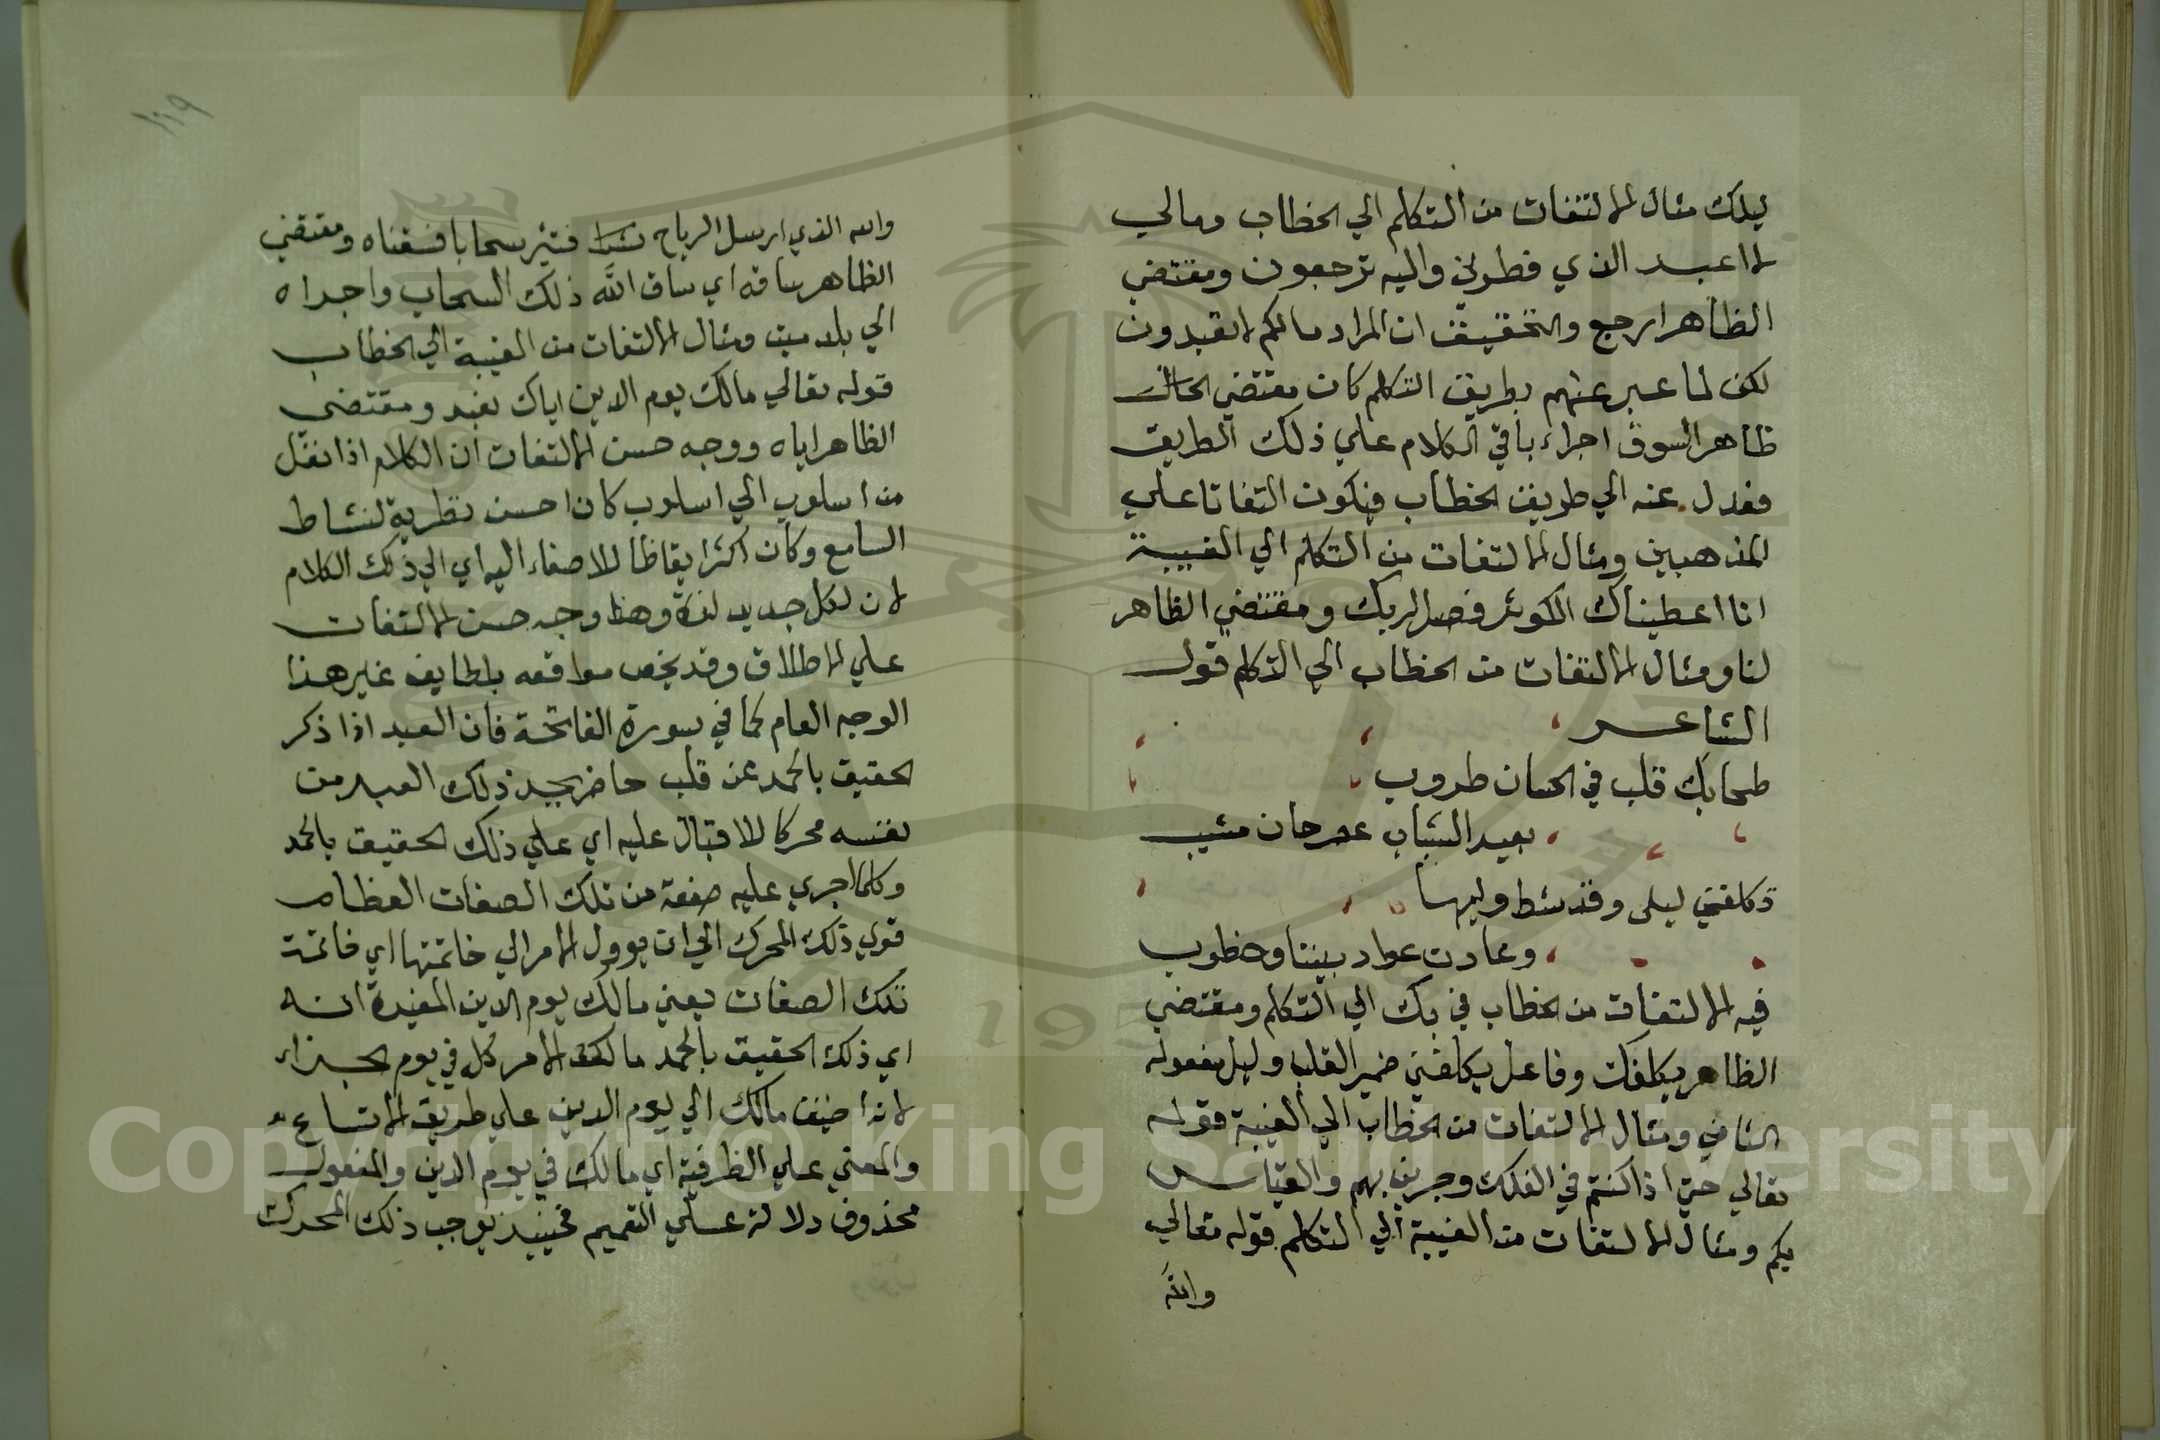 ليلك مثال الالتفات من التكلم الي الخطاب ومالي
لا اعبد الذي فطرني واليه ترجعون ومقتضي
الظاهر ارجع والتحقيق ان المراد مالكم لا تعبدون
لكن لما عبر عنهم بطريق التكلم كان مقتضي الحال
ظاهر السوق اجراء باقي الكلام علي ذلك الطريق
فعدل عنه الي طريق الخطاب فيكون التفاتا علي
المذهبين ومثال الالتفات من التكلم الي الغيبة
انا اعطيناك الكوثر فصل لربك ومقتضي الظاهر
لنا ومثال الالتفات من الخطاب الي التكلم قول
الشاعر
طحابك قلب في الحسان طروب
بعيد الشباب عصر حان مشيب
تكلفني ليلى وقد شط وليها
وعادت عواد بيننا وخطوب
فيه الالتفات من الخطاب في بك الي التكلم ومقتضي
الظاهر يكلفك وفاعل يكلفني ضمير القلب وليل مفعوله
الثاني ومثال الالتفات من الخطاب الي الغيبة قوله
تعالي حتي اذا كنتم في الفلك وجرين بهم والقياس
بكم ومثال الالتفات من الغيبة الي التكلم قوله تعالي
والله
١١٩
والله الذي ارسل الرياح فتثير سحابا فسقناه ومقتضي
الظاهر ساقه اي ساق الله ذلك السحاب واجراه
الي بلد ميت ومثال الالتفات من الغيبة الي الخطاب
قوله تعالي مالك يوم الدين اياك نعبد ومقتضي
الظاهر اياه ووجه حسن الالتفات ان الكلام اذا نقل
من اسلوب الي اسلوب كان احسن تطرية لنشاط
السامع وكان اكثر ايقاظا للاصغاء اليه اي الي ذلك الكلام
لان لكل جديد لذة وهذا وجه حسن الالتفات
علي الاطلاق وقد يخص مواقعه بلطايف غير هذا
الوجه العام كما في سورة الفاتحة فان العبد اذا ذكر
الحقيق بالحمد عن قلب حاضر يجد ذلك العبد من
نفسه محركا للاقبال عليه اي علي ذلك الحقيق بالحمد
وكلما اجري عليه صفة من تلك الصفات العظام
قوي ذلك المحرك الي ان يوول الامر الي خاتمتها اي خاتمة
تلك الصفات يعني مالك يوم الدين المفيدة انه
اي ذلك الحقيق بالحمد مالك الامر كله في يوم الجزاء
لانه اضيف مالك الي يوم الدين علي طريق الاتساع
والمعني علي الظرفية اي مالك في يوم الدين والمفعول
محذوف دلالة علي التعميم فحينيذ يوجب ذلك المحرك
Copyright © King Saud University
195